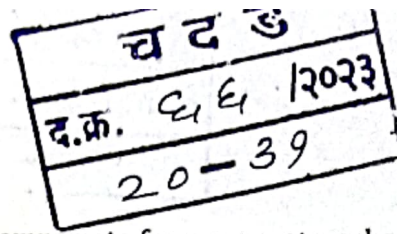 च द ड
द.क्र. ६६ /२०२३
20-39